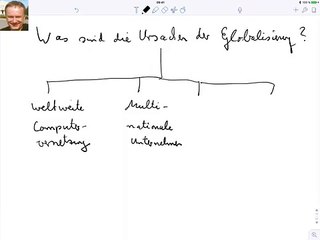 Was sind die Ursachen der Globalisierung?
weltweite
Computer-
vernetzung
Multi-
nationale
Unternehmen